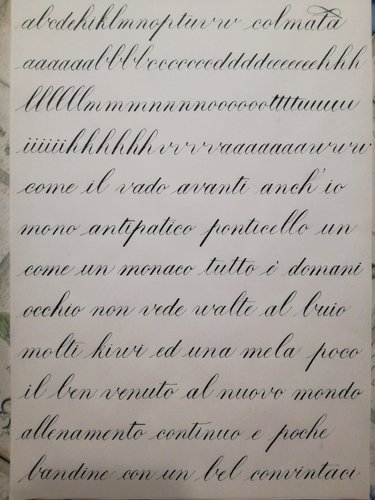 abcdehiklmnoptuvw colmata
aaaaaabbbbccccccccdddddeeeeeehhh
llllllmmmnnnnoooooottttuuuuu
iiiiiihhhhhhvvvvaaaaaaawwww
come il vado avanti anch'io
mono antipatico ponticello un
come un monaco tutto i domani
occhio non vede walte al buio
molti kiwi ed una mela poco
il ben venuto al nuovo mondo
allenamento continuo e poche
bandine con un bel convintaci